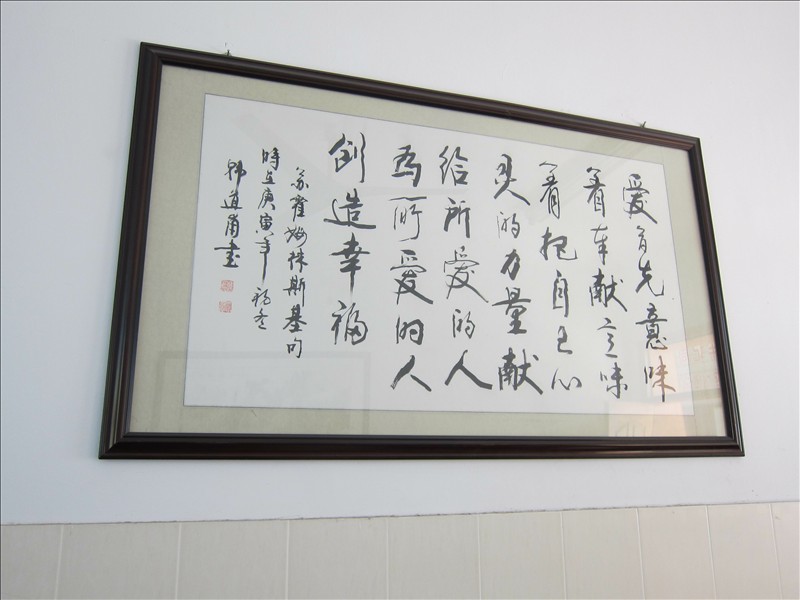 愛首先意味
着奉献意味
着把自己心
灵的力量献
给所愛的人
為所愛的人
創造幸福
苏霍姆林斯基句
時在庚寅年